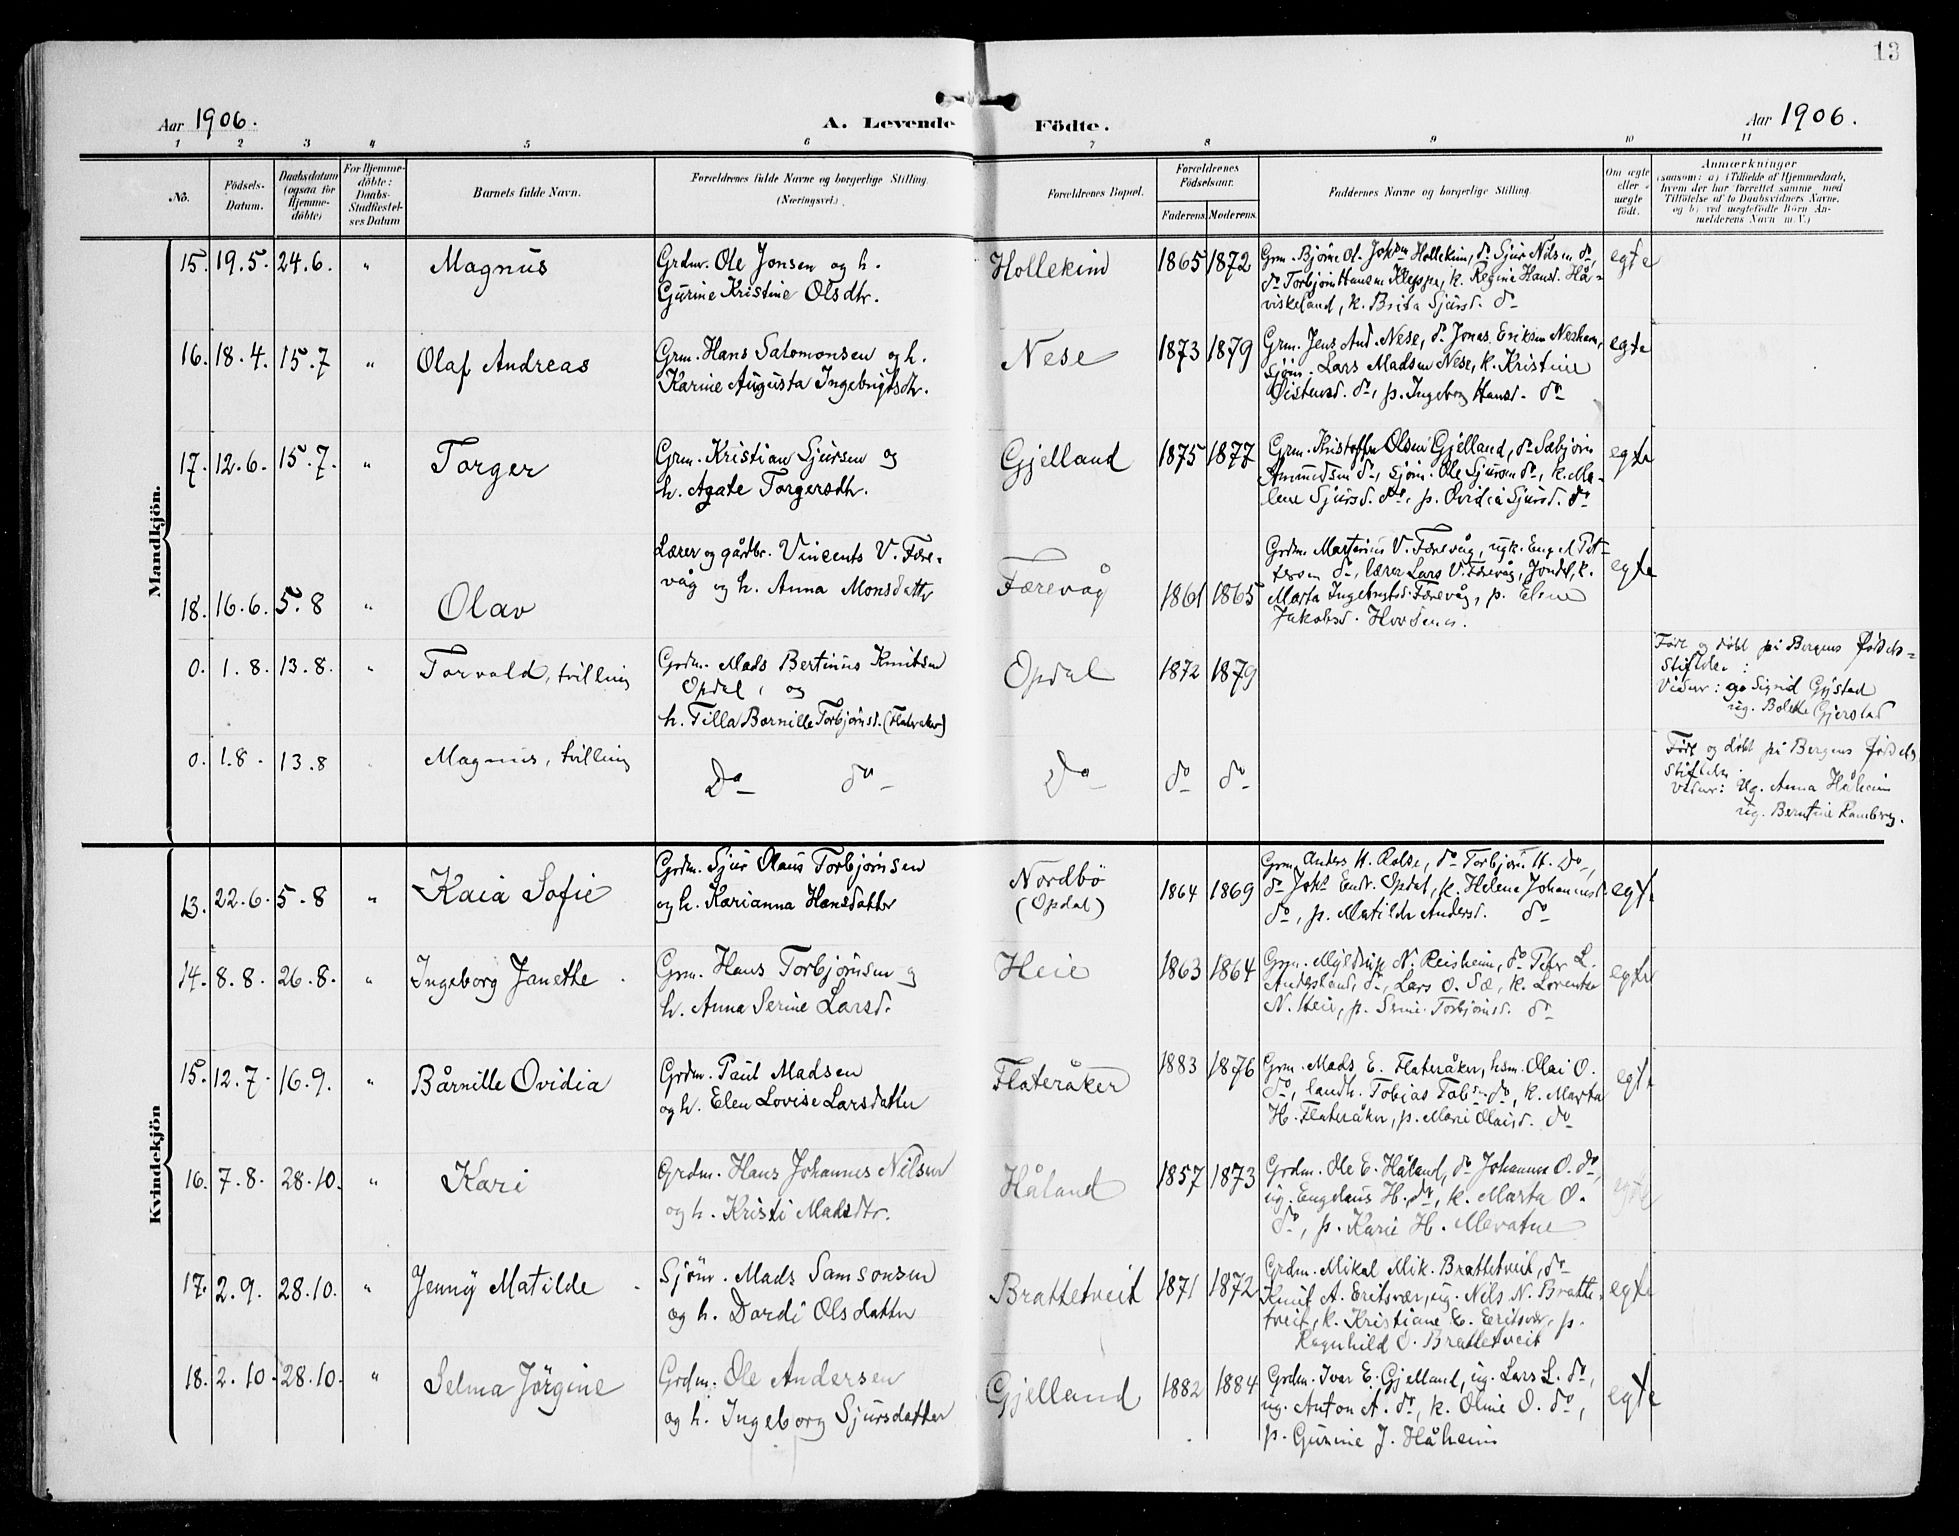 13
Aar 1906.
A. Levende Födte.
Aar 1906.
1 2 3 4 5 6 7 8 9 10 11
No.
Födsels-
Datum.
Daabsdatum
(ogsaa for
Hjemme-
döbte)
For Hjemme-
döbte:
Daabs-
Stadfæstel-
ses Datum
Barnets fulde Navn.
Forældrenes fulde Navne og borgerlige Stilling.
(Næringsvei.)
Forældrenes Bopæl.
Forældrenes
Födselsaar.
Faderens. Moderens.
Faddernes Navne og borgerlige Stilling.
Om ægte
eller
uægte
födt.
Anmærkninger
(saasom: a) i Tilfælde af Hjemmedaab,
hvem der har forrettet samme, med
Tilföielse af to Daabsvidners Navne.
og b) ved uægtefödte Börn An-
melderens Navn m. V.)
Mandkjön.
15. 19.5. 24.6. " Magnus
Grdm. Ole Jonsen og h.
Gurine Kristine Olsdtr.
Hollekim 1865 1872
Grm. Bjørn Ol. Hollekim, do Sjur Nilsen do,
do Torbjørn Hansen Kleppe, k. Regine Hansd. Hå-
viskeland, k. Brita Sjursd. do
egte
16. 18.4. 15.7 " Olaf Andreas
Grm. Hans Salomonsen og h.
Karine Augusta Ingebrigtsdtr.
Nese 1873 1879
Grm. Jens And. Nese, do Jonas Eriksen Neshem,
Sjøm. Lars Madsen Nese, k. Kristine
Øistensd. do, p. Ingeborg Hansd. do
egte
17. 12.6. 15.7. " Torger
Grm. Kristian Sjursen og
h. Agate Torgersdtr.
Gjelland 1875 1877
Grm. Kristoffer Olsen Gjelland, do Sæbjørn
Ammundsen do, sjøm. Ole Sjursen do, k. Ma-
lene Sjursd. do, p. Ovidia Sjursd. do
egte
18. 16.6. 5.8 " Olav
Lærer og gårdbr. Vincents V. Fære-
våg og h. Anna Monsdatter
Færevåg 1861 1865
Grdm. Martinius V. Færevåg, ugk. Engel Pet-
tersen do, lærer Lars V. Færevåg, Jondal, k.
Marta Ingebrigtsd. Færevåg, p. Elene
Jakobsd.
egte
0. 1.8. 13.8. " Torvald, tvilling
Grdm. Mads Bertinius Knutsen
Opdal, og
h. Tilla Bornille Torbjørnsd. (Flateråker)
Opdal 1872 1879
Født og døbt på Bergens fødsels-
stiftelse:
Vidner: Sigrid Gjystad
ug. Bolette Gjerstad
0. 1.8. 13.8 Magnus, tvilling
Do do
Do do do
Født og døbt på Bergens fødsels
stiftelse.
Vidner: Ug. Anna Håheim
ug. Berntine Ramberg.
Kvindekjön
13. 22.6. 5.8 " Kaia Sofie
Grdm. Sjur Olaus Torbjørnsen
og h. Karianna Hansdatter
Nordbö
(Opdal)
1864 1869
Grm. Anders H. Rolse, do Torbjørn H. Do,
do Johs Endr. Opdal, k. Helena Johannesd.
do, p. Matilde Andersd. do
egte
14. 8.8. 26.8. " Ingeborg Janethe
Grm. Hans Torbjørnsen og
h. Anna Serine Larsd.
Heie 1863 1864
Grm. N. Reisheim, do Peter L.
Andersland, do, Lars O. Sæ, k. Lorentse
N. Heie, p. Serine Torbjørnsd. do
egte
15. 12.7. 16.9. " Bårnille Ovidia
Grdm. Paul Madsen
og h. Elen Lovise Larsdatter
Flateråker
1883 1876
Grm. Mads E. Flateråker, hsm. Olai O.
do, landh. Tobias Tobsn do, k. Marta
H. Flateråker, p. Marie Olaisd. do
egte
16. 7.8. 28.10. " Kari
Grdm. Hans Johannes Nilsen
og h. Kristi Madsdtr.
Håland 1857 1873
Grdm. Ole E. Håland, do Johannes O. do,
ug. Engelaus H. do, k. Marta O.
do, p. Karie H. Mevatne
egte
17. 2.9. 28.10. " Jenny Matilde
Sjöm. Mads Samsonsen
og h. Dordi Olsdatter
Brattetveit 1871 1872
Grdm. Mikal Mik. Brattetveit, do
Knut A. Eritsvær, ug. Nils N. Bratte-
tveit, k. Kristiane E. Eritsvær, p.
Ragnhild O. Brattetveit
egte
18. 2.10. 28.10. " Selma Jørgine
Grdm. Ole Andersen
og h. Ingeborg Sjursdatter
Gjelland 1882 1884
Grdm. Ivar E. Gjelland, ug. Lars L. do,
ug. Anton A. do, k. Oline O. do,
p. Gurine J. Håheim
egte